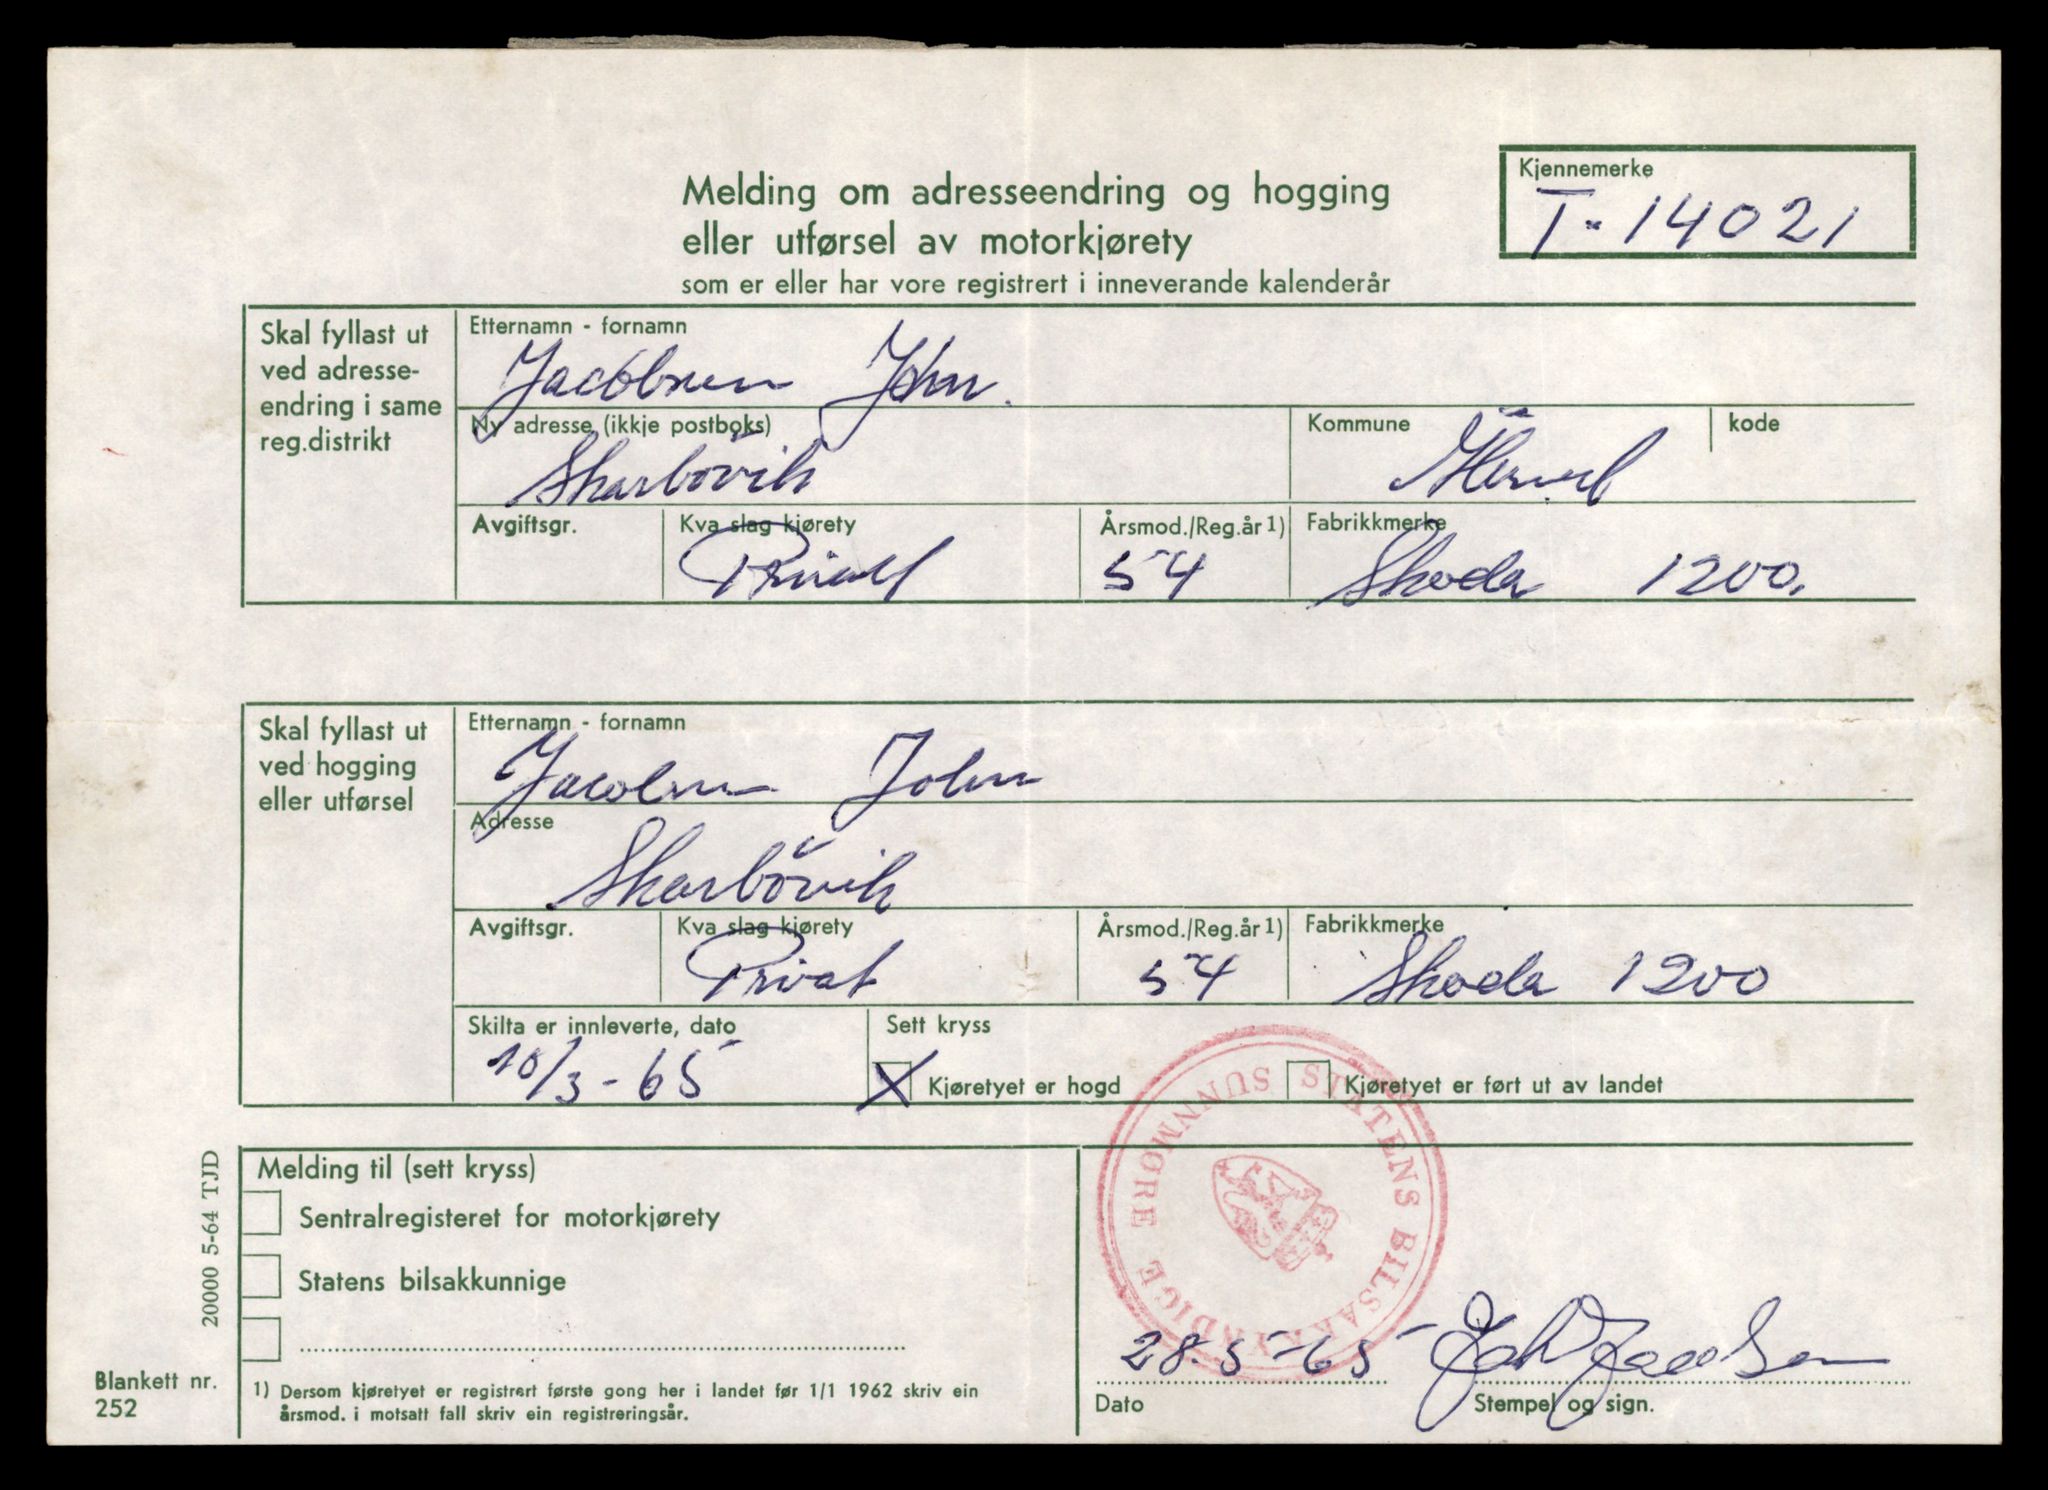 Melding om adresseendring og hogging
eller utførsel av motorkjørety
som er eller har vore registrert i inneverande kalenderår
Kjennemerke
T-14021
Skal fyllast ut
ved adresse-
endring i same
reg.distrikt
Etternamn - fornamn
Jacobsen John.
Ny adresse (ikkje postboks)
Skarbövik
Kommune
kode
Avgiftsgr.
Kva slag kjørety
Privat
Årsmod./Reg.år 1)
54
Fabrikkmerke
Skoda 1200.
Skal fyllast ut
ved hogging
eller utførsel
Etternamn - fornamn
Jacobsen John
Adresse
Skarbövik
Avgiftsgr.
Kva slag kjørety
Privat
Årsmod./Reg.år 1)
54
Fabrikkmerke
Skoda 1200
Skilta er innleverte, dato
10/3-65
Sett kryss
X Kjøretyet er hogd
Kjøretyet er ført ut av landet
Melding til (sett kryss)
Sentralregisteret for motorkjørety
Statens bilsakkunnige
STATENS BILSAKKYNDIGE SUNNMØRE
28.5-65
John Jacobsen
Dato
Stempel og sign.
1) Dersom kjøretyet er registrert første gong her i landet før 1/1 1962 skriv ein
årsmod. i motsatt fall skriv ein registreringsår.
20000 5-64 TJD
Blankett nr.
252